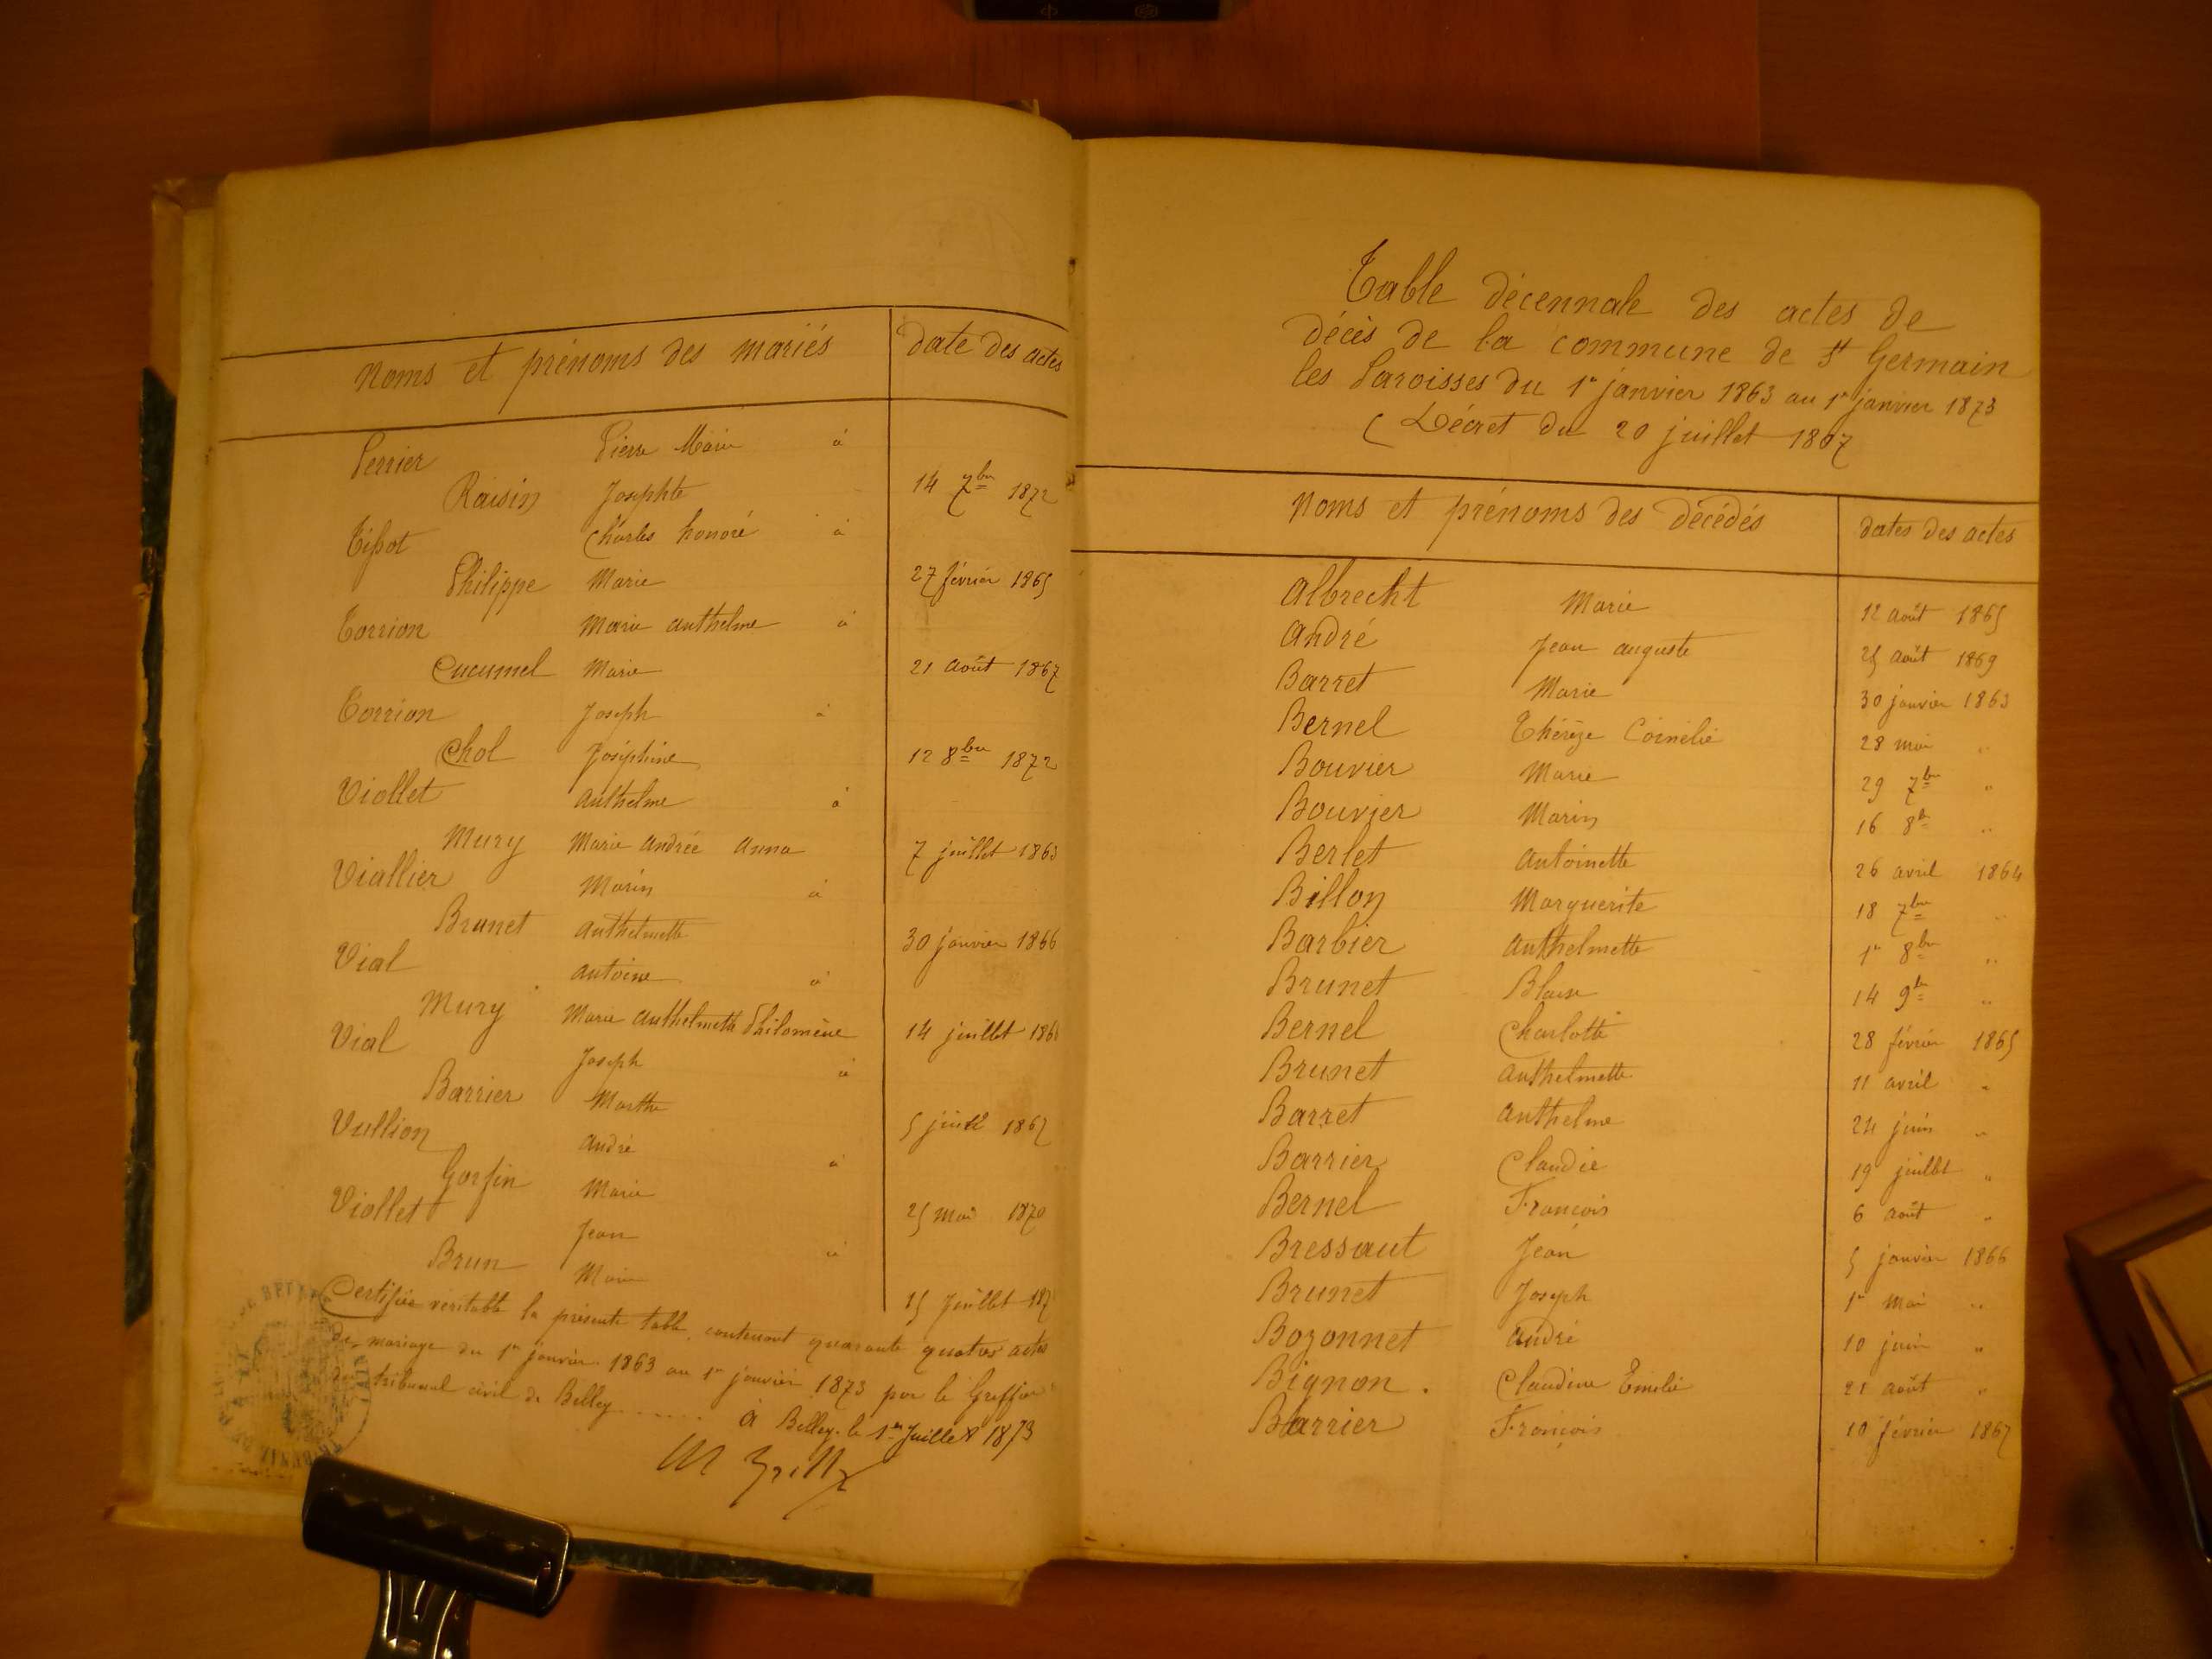 Noms et prénoms des mariés date des actes
Perrier Pierre Marie à
Raisin Josephte 14 7bre 1872
Tissot Charles honoré à
Philippe Marie 27 février 1865
Torrion Marie anthelme à
Cucumel Marie 21 août 1867
Torrion Joseph à
Chol Joséphine 12 8bre 1872
Viollet anthelme à
Mury Marie andrée anna 7 juillet 1863
Viallier Marin à
Brunet anthelmette 30 janvier 1866
Vial antoine à
Mury Marie anthelmette Philomène 14 juillet
Vial Joseph à
Barrier Marthe 5 1867
Vullion andré à
Gorjin Marie 25 mai 1870
Viollet Jean à
Brun Marie 15 Juillet 187
Certifiée véritable la présente table, contenant quarante quatre actes
de mariage du 1er janvier 1863 au 1er janvier 1873 par le Greffier
du tribunal civil de Belley ..... à Belley le 1er Juillet 1873
Table décennale des actes de
décès de la commune de St Germain
les Paroisses du 1er janvier 1863 au 1er janvier 1873
( Décret du 20 juillet 1807
Noms et prénoms des décédés dates des actes
Albrecht Marie 12 août 1865
André Jean auguste 25 août 1869
Barret Marie 30 janvier 1863
Bernel Thérèze Cornélie 28 mai "
Bouvier Marie 29 7bre "
Bouvier Marin 16 8bre "
Berlet Antoinette 26 avril 1864
Billon Marguerite 18 7bre "
Barbier anthelmette 1er 8bre "
Brunet Blaise 14 9bre "
Bernel Charlotte 28 février 1865
Brunet anthelmette 11 avril "
Barret anthelme 24 juin "
Barrier Claudie 19 juillet "
Bernel François 6 août "
Bressaut Jean 5 janvier 1866
Brunet Joseph 1er mai "
Bozonnet andré 10 juin "
Bignon . Claudine Emélie 21 août "
Barrier François 10 février 1867